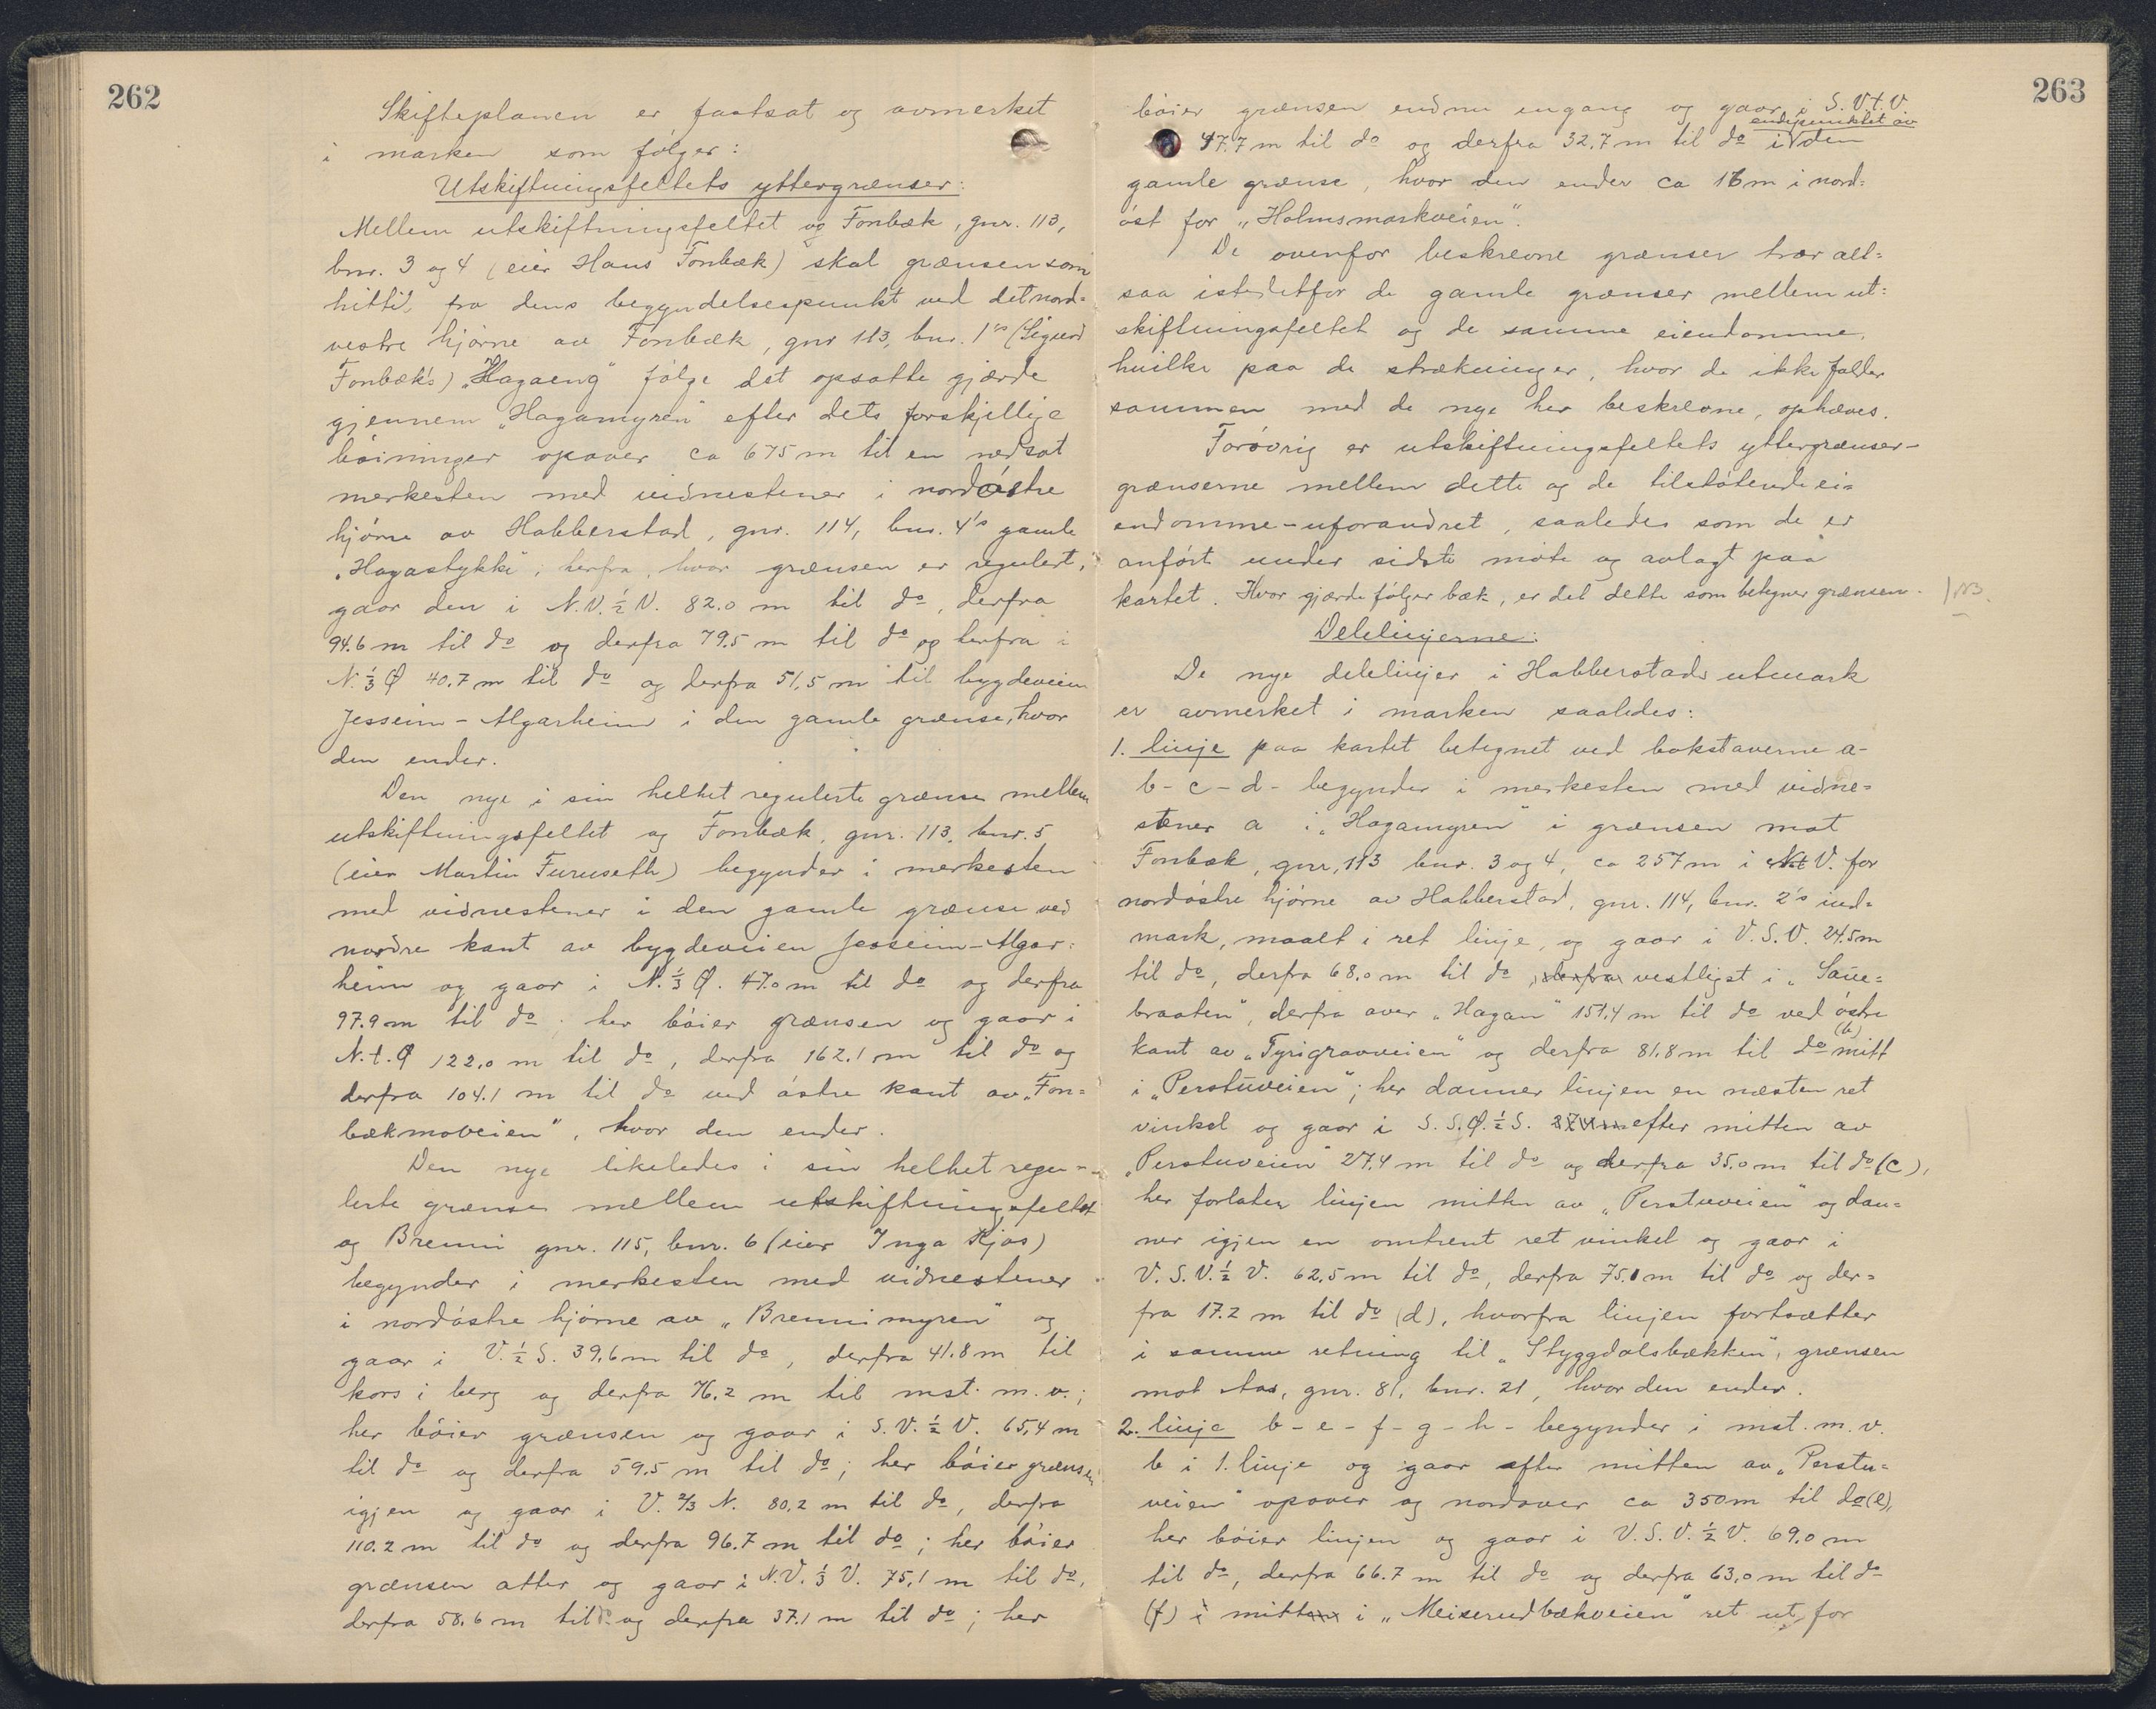 262
Skifteplanen er fastsat og avmerket
i marken som følger:
Utskiftningsfeltets yttergrænser:
Mellem utskiftningsfeltet og Fonbæk, gnr. 113,
bnr. 3 og 4 (eier Hans Fonbæk) skal grænsen som
hittil, fra dens begyndelsespunkt ved det nord-
vestre hjørne av Fonbæk, gnr 113, bnr. 1's (Sigurd
Fonbæk's) "Hagaeng" følge det opsatte gjærde
gjennem "Hagamyren" efter dets forskjellige
bøininger opover ca 675 m til en nedsat
merkesten med vidnestener i nordøstre
hjørne av Habberstad, gnr. 114, bnr. 4's gamle
"Hagastykke"; herfra, hvor grænsen er regulert,
gaar den i N.V.½V. 82.0 m til do, derfra
94.6 m til do og derfra 79.5 m til do og herfra i
N.⅓Ø 40.7 m til do og derfra 51,5 m til bygdeveien
Jesseim-Algarheim i den gamle grænse, hvor
den ender.
Den nye i sin helhet regulerte grænse mellem
utskiftningsfeltet og Fonbæk, gnr. 113, bnr. 5
(eier Martin Furuseth) begynder i merkesten
med vidnestener i den gamle grænse ved
nordre kant av bygdeveien Jesseim-Algar-
heim og gaar i N.⅓Ø. 47.0 m til do og derfra
97.9 m til do; her bøier grænsen og gaar i
N.t.Ø 122.0 m til do, derfra 162.1 m til do og
derfra 104.1 m til do ved østre kant av "Fon-
bækmoveien", hvor den ender.
Den nye likeledes i sin helhet regu-
lerte grænse mellem utskiftningsfeltet
og Brenni gnr. 115, bnr. 6 (eier Inga Kjos)
begynder i merkesten med vidnestener
i nordøstre hjørne av "Brennimyren" og
gaar i V.½S. 39.6 m til do, derfra 41.8 m til
kors i berg og derfra 76.2 m til mst. m. v.;
her bøier grænsen og gaar i S.V.½V. 65,4 m
til do og derfra 59.5 m til do; her bøier grænsen
igjen og gaar i V.⅔N. 80.2 m til do, derfra
110.2 m til do og derfra 96.7 m til do; her bøier
grænsen atter og gaar i N.V.⅓V. 75,1 m til do,
derfra 58.6 m til do og derfra 37.1 m til do; her
263
bøier grænsen endnu engang og gaar i S.V.t.V.
endepunktet av
47.7 m til do og derfra 32.7 m til do i den
gamle grænse, hvor den ender ca 16 m i nord-
øst for "Holmsmarkveien".
De ovenfor beskrevne grænser trær alt-
saa istedetfor de gamle grænser mellem ut-
skiftningsfeltet og de samme eiendomme,
hvilke paa de strækninger, hvor de ikke falder
sammen med de nye her beskrevne, ophæves.
Forøvrig er utskiftningsfeltets yttergrænser-
grænserne mellem dette og de tilstøtende ei-
endomme-uforandret, saaledes som de er
anført under sidste møte og avlagt paa
kartet. Hvor gjærde følger bæk, er det dette som betegner grænsen.
Delelinjerne:
De nye delelinjer i Habberstads utmark
er avmerket i marken saaledes:
1. linje paa kartet betegnet ved bokstaverne a-
b-c-d- begynder i merkesten med vidne-
stener a i "Hagamyren" i grænsen mot
Fonbæk, gnr, 113 bnr. 3 og 4, ca 257 m i V. for
nordøstre hjørne av Habberstad, gnr. 114, bnr. 2's ind-
mark, maalt i ret linje, og gaar i V.S.V. 24.5 m
til do, derfra 68.0 m til do, derfra vestligst i "Saue-
braaten", derfra over "Hagan" 151,4 m til do ved østre
(b)
kant av "Tyrigravveien" og derfra 81.8 m til do mitt
i "Perstuveien"; her danner linjen en næsten ret
vinkel og gaar i S.S.Ø.½S. efter mitten av
"Perstuveien" 27.4 m til do og derfra 35.0 m til do (c),
her forlater linjen mitten av "Perstuveien" og dan-
ner igjen en omtrent ret vinkel og gaar i
V.S.V.½V. 62.5 m til do, derfra 75.1 m til do og der-
fra 17.2 m til do (d), hvorfra linjen fortsætter
i samme retning til "Styggdalsbækken", grænsen
mot Aas, gnr. 81, bnr. 21, hvor den ender.
2. linje b-e-f-g-h- begynder i mst. m. v.
b i 1. linje og gaar efter mitten av "Perstu-
veien" opover og nordover ca 350 m til do (e),
her bøier linjen og gaar i V.S.V.½V. 69.0 m
til do, derfra 66.7 m til do og derfra 63,0 m til do
(f) i mitten i "Meiserudbækveien" ret ut for